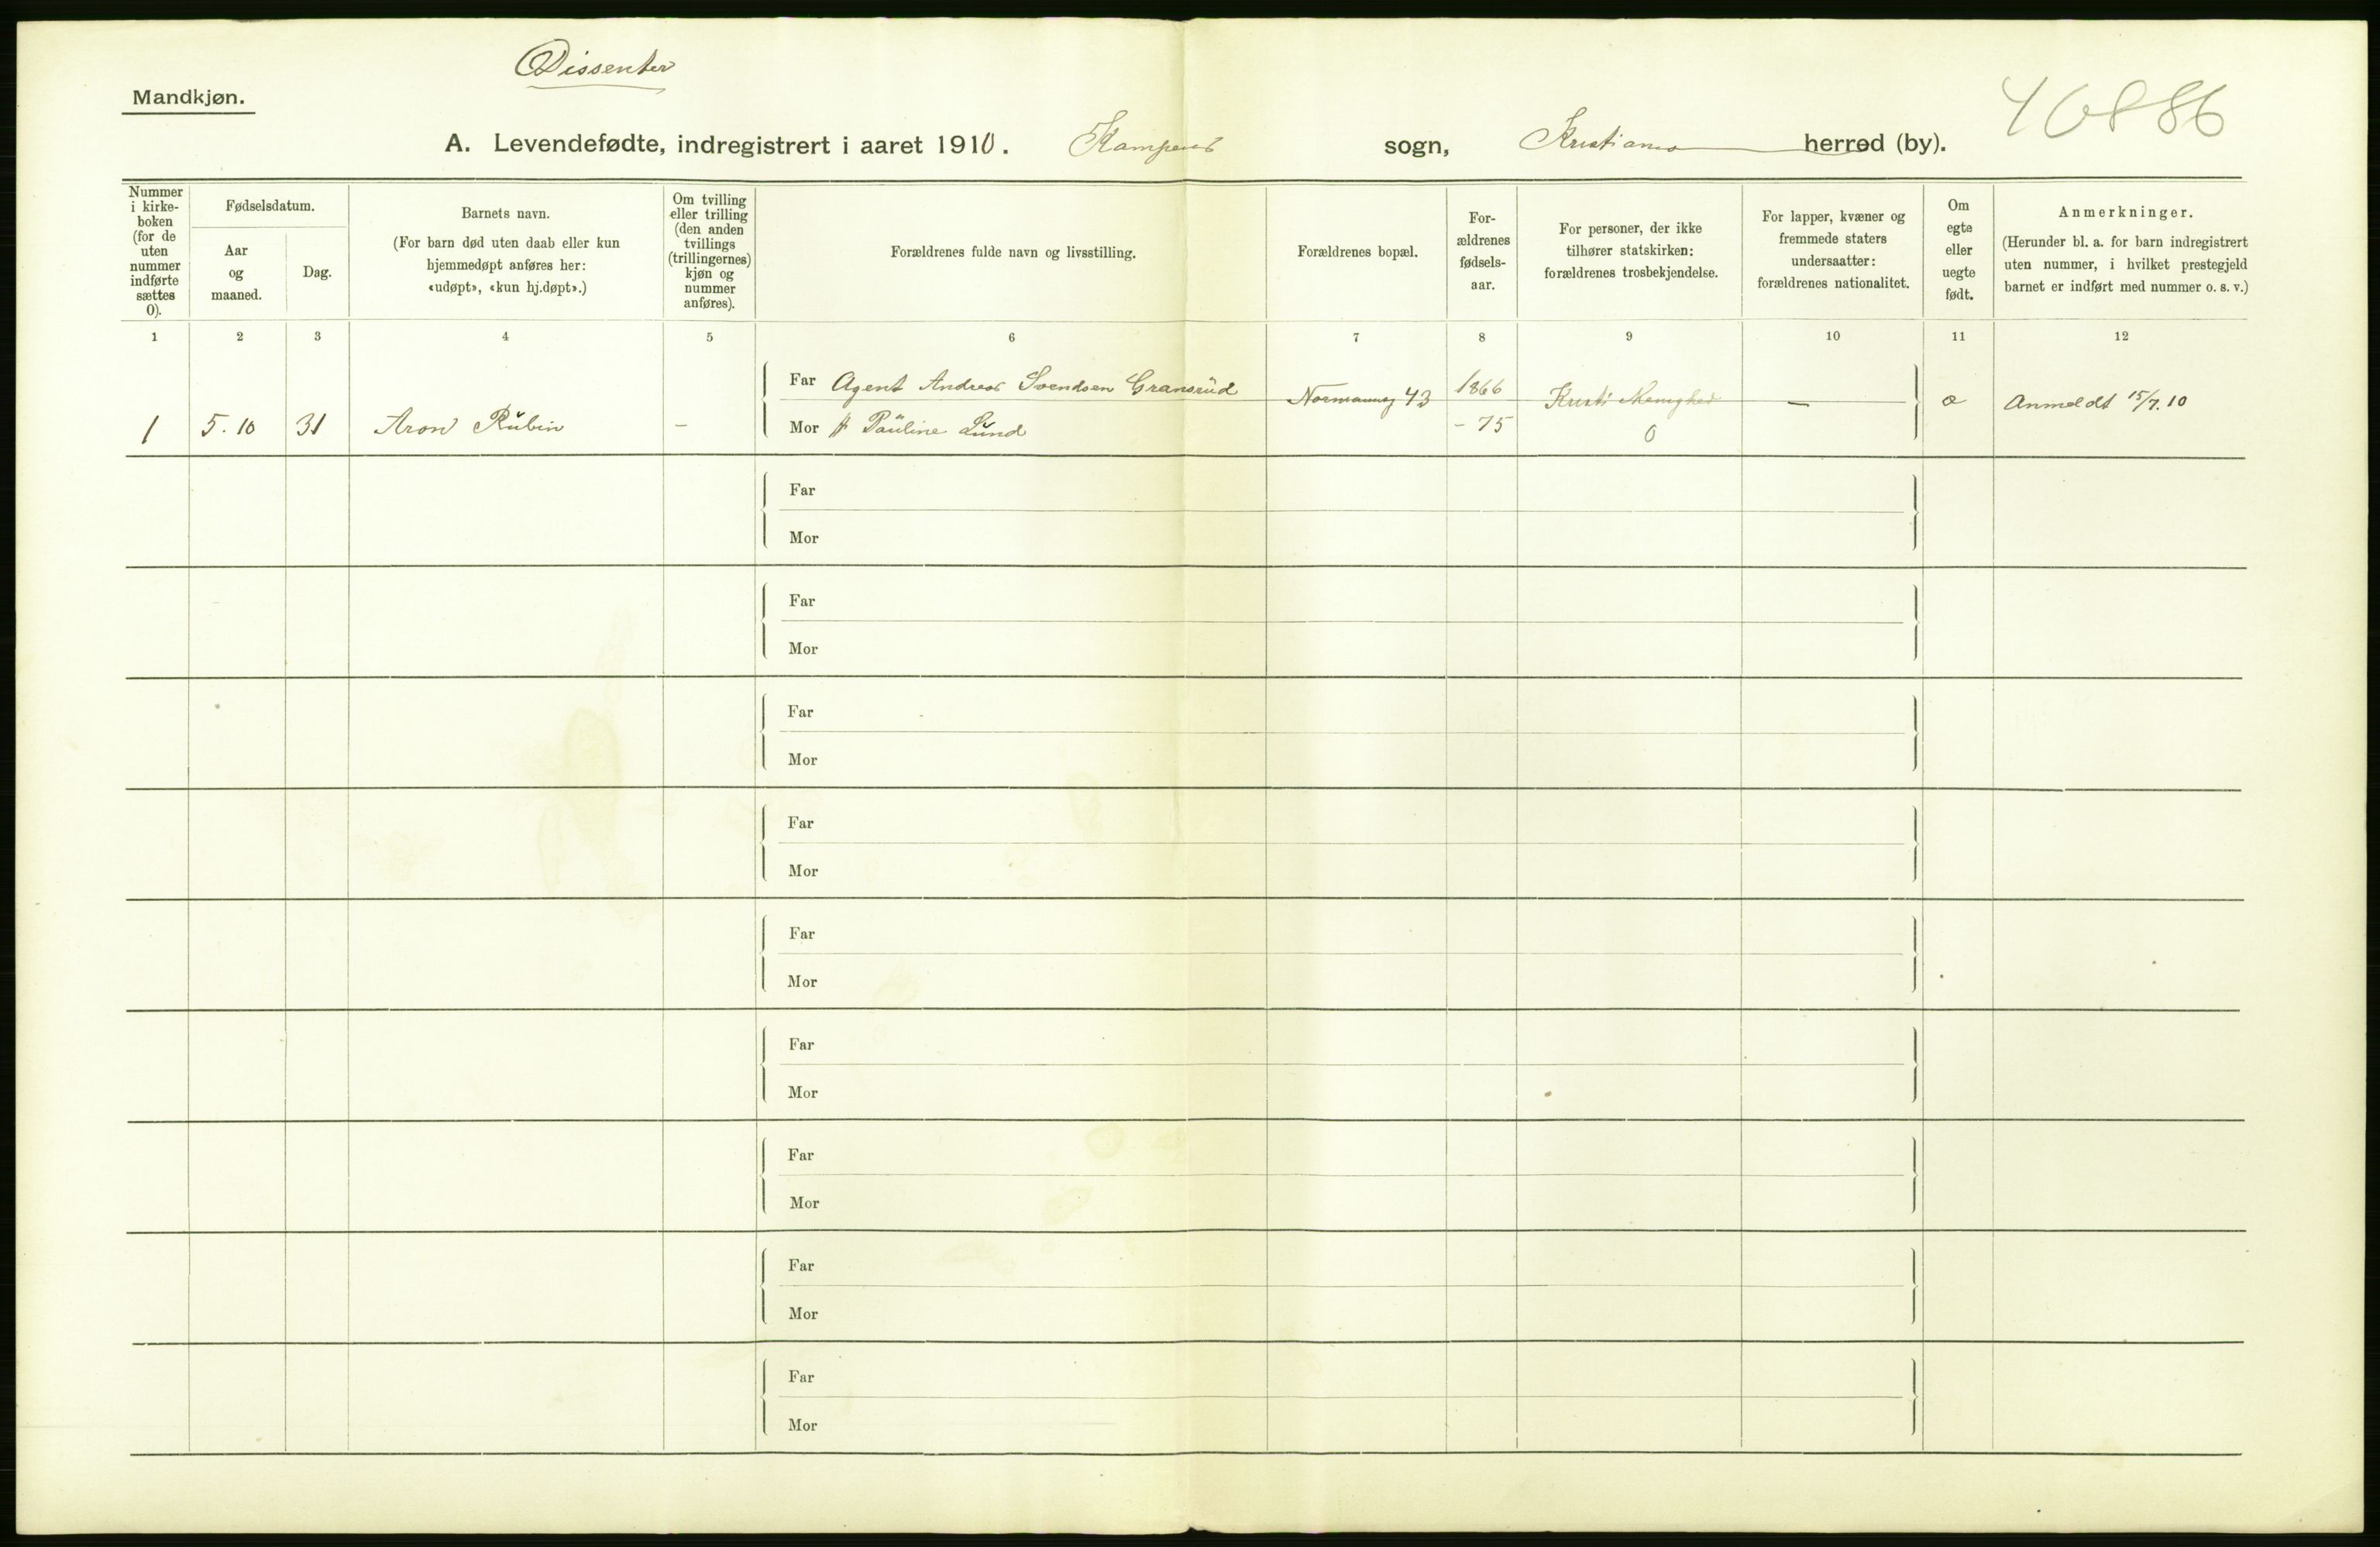 Dissenter
Mandkjøn.
40886
A. Levendefødte, indregistrert i aaret 1910. Kampens sogn, Kristiania herred (by).
Nummer i kirke-boken (for de uten nummer indførte sættes 0).
Fødselsdatum.
Aar og maaned.
Dag.
Barnets navn.
(For barn død uten daab eller kun hjemmedøpt anføres her: «udøpt», «kun hj.døpt».)
Om tvilling eller trilling (den anden tvillings (trillingernes) kjøn og nummer anføres).
Forældrenes fulde navn og livsstilling.
Forældrenes bopæl.
For-ældrenes fødsels-aar.
For personer, der ikke tilhører statskirken: forældrenes trosbekjendelse.
For lapper, kvæner og fremmede staters undersaatter: forældrenes nationalitet.
Om egte eller uegte født.
Anmerkninger.
(Herunder bl. a. for barn indregistrert uten nummer, i hvilket prestegjeld barnet er indført med nummer o. s. v.)
1 2 3 4 5 6 7 8 9 10 11 12
Far Agent Andreas Svendsen Gransrud Normannsg 43 1866 Kristi Menighed — æ Anmeldt 15/7.10
1 5.10 31 Aron Rubin – Mor Pauline Lund - 75 0
Far
Mor
Far
Mor
Far
Mor
Far
Mor
Far
Mor
Far
Mor
Far
Mor
Far
Mor
Far
Mor